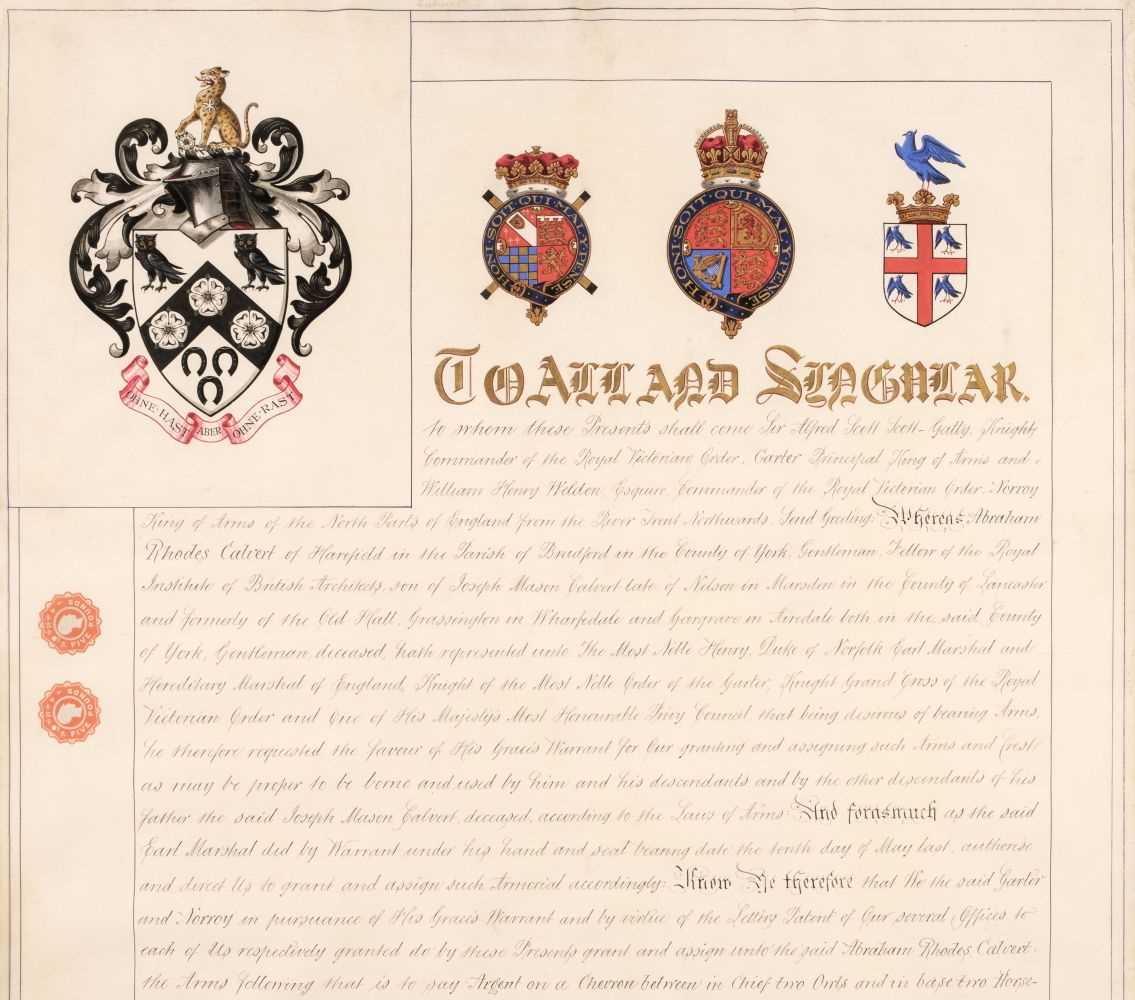 OHNE·HAST ABER OHNE·RAST
HONI·SOIT·QUI·MAL·Y·PENSE
HONI·SOIT·QUI·MAL·Y·PENSE
TO ALL AND SINGULAR.
to whom these Presents shall come Sir Alfred Scott Scott-Gatty, Knight,
Commander of the Royal Victorian Order, Garter Principal King of Arms and
William Henry Weldon, Esquire, Commander of the Royal Victorian Order, Norroy
King of Arms of the North Parts of England from the River Trent Northwards, Send Greeting: Whereas Abraham
Rhodes Calvert of Harefield in the Parish of Bradford in the County of York, Gentleman, Fellow of the Royal
Institute of British Architects, son of Joseph Mason Calvert late of Nelson in Marsden in the County of Lancaster
and formerly of the Old Hall, Grassington in Wharfedale and Gargrave in Airedale both in the said County
of York, Gentleman, deceased, hath represented unto The Most Noble Henry, Duke of Norfolk Earl Marshal and
Hereditary Marshal of England, Knight of the Most Noble Order of the Garter, Knight Grand Cross of the Royal
Victorian Order and One of His Majesty's Most Honourable Privy Council that being desirous of bearing Arms,
he therefore requested the favour of His Grace's Warrant for Our granting and assigning such Arms and Crest
as may be proper to be borne and used by him and his descendants and by the other descendants of his
father the said Joseph Mason Calvert, deceased, according to the Laws of Arms: And forasmuch as the said
Earl Marshal did by Warrant under his hand and seal bearing date the tenth day of May last, authorise
and direct Us to grant and assign such Armorial accordingly: Know Ye therefore that We the said Garter
and Norroy in pursuance of His Grace's Warrant and by virtue of the Letters Patent of Our several Offices to
each of Us respectively granted do by these Presents grant and assign unto the said Abraham Rhodes Calvert
the Arms following that is to say Argent on a Chevron between in Chief two Owls and in base two Horse-
POUNDS FIVE
POUNDS FIVE